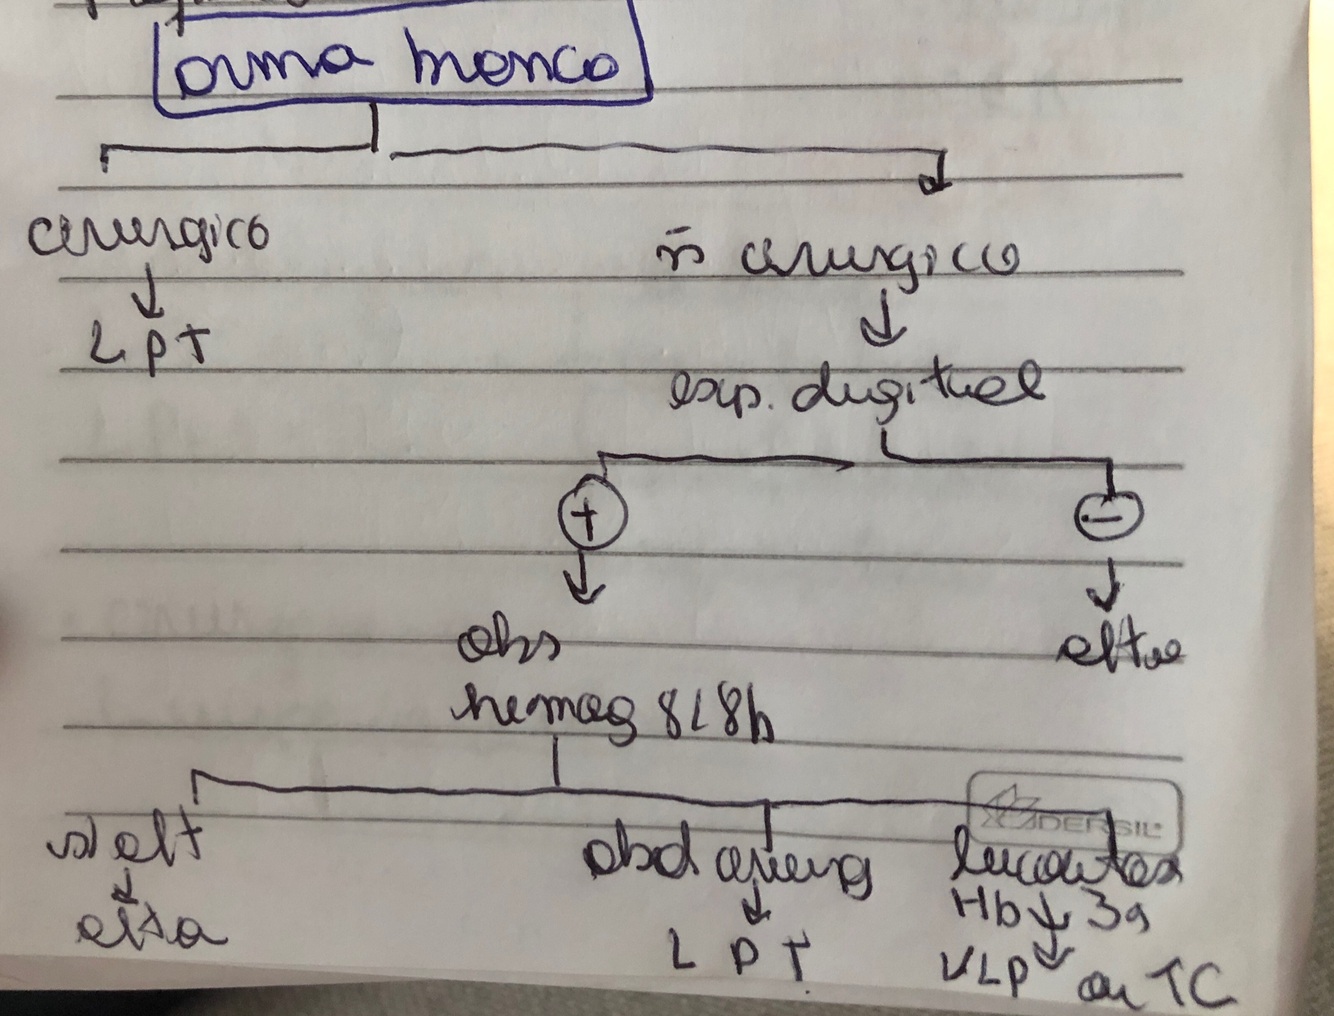 arma branca
cirurgico
ñ cirurgico
LPT
exp. digital
+
-
obs
alta
hemog 8/8h
s/ alt
abd cirurg
leucocitos
alta
Hb ↓ 3g
LPT
VLP ou TC
DERSIL